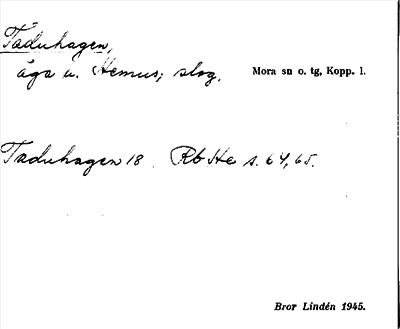 Täduhagen,
äga u. Hemus; slog. Mora sn o. tg, Kopp. l.
Taduhagen 18 Rb He s. 64, 65.
Bror Lindén 1945.